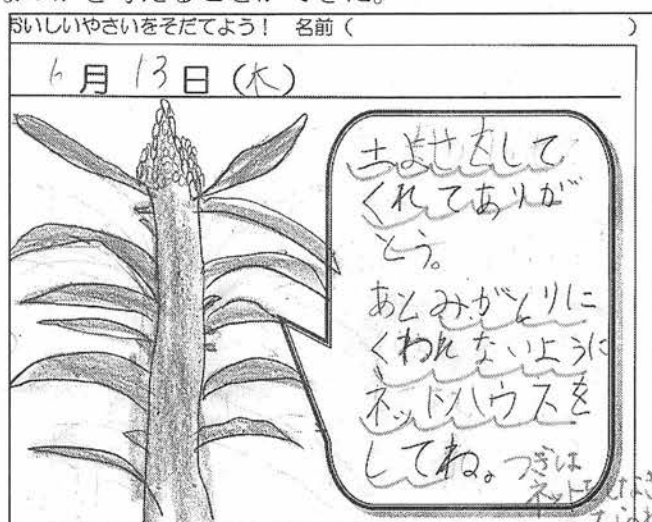 おいしいやさいをそだてよう! 名前( )
6月13日(木)
土よせをして
くれてありが
とう。
あとみがとりに
くわれないように
ネットハウスを
してね。
つぎは